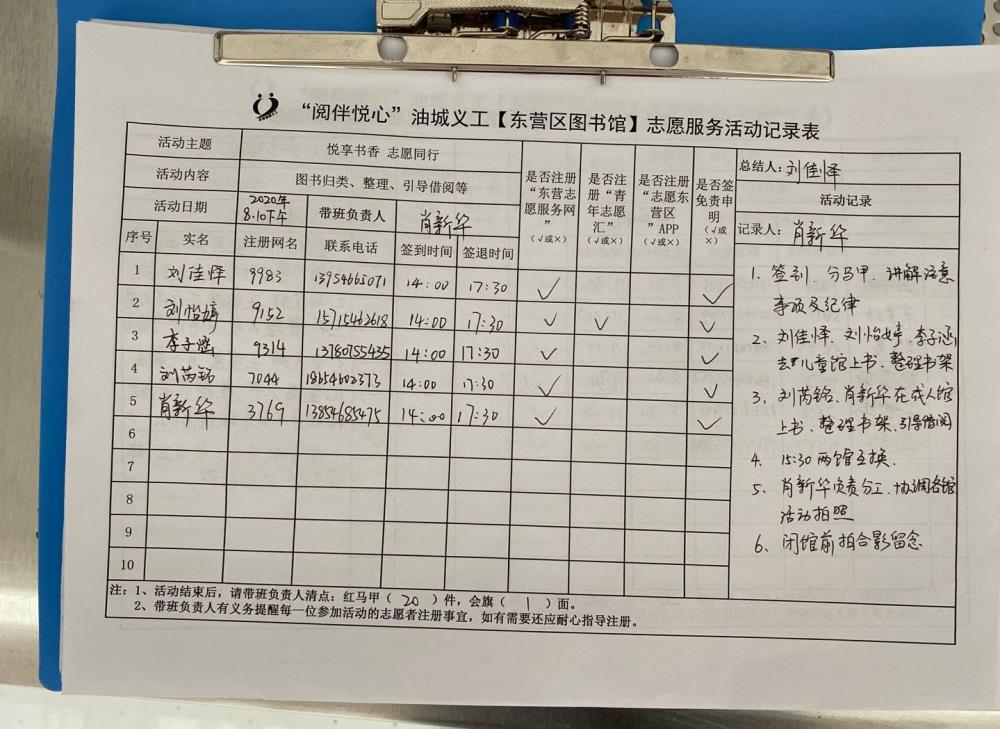 “阅伴悦心”油城义工【东营区图书馆】志愿服务活动记录表
活动主题 悦享书香 志愿同行
活动内容 图书归类、整理、引导借阅等
活动日期 2020年8.10下午 带班负责人 肖新华
是否注册“东营志愿服务网”（√或×）
是否注册“青年志愿汇”（√或×）
是否注册“志愿东营区”APP（√或×）
是否签免责申明（√或×）
总结人：刘佳怿
活动记录
记录人：肖新华
序号 实名 注册网名 联系电话 签到时间 签退时间
1 刘佳怿 9983 13954665071 14:00 17:30 √ √
2 刘怡婷 9152 15715462618 14:00 17:30 √ √ √
3 李子涵 9314 13780755435 14:00 17:30 √ √
4 刘芮铭 7044 18654602373 14:00 17:30 √ √
5 肖新华 3769 13854685475 14:00 17:30 √ √
6
7
8
9
10
1. 签到、分马甲、讲解注意
事项及纪律
2、刘佳怿、刘怡婷、李子涵
去儿童馆上书、整理书架
3、刘芮铭、肖新华在成人馆
上书、整理书架、引导借阅
4. 15:30两馆互换.
5、肖新华负责分工、协调各馆
活动拍照
6、闭馆前拍合影留念
注：1、活动结束后，请带班负责人清点：红马甲（ 20 ）件，会旗（ 1 ）面。
2、带班负责人有义务提醒每一位参加活动的志愿者注册事宜，如有需要还应耐心指导注册。